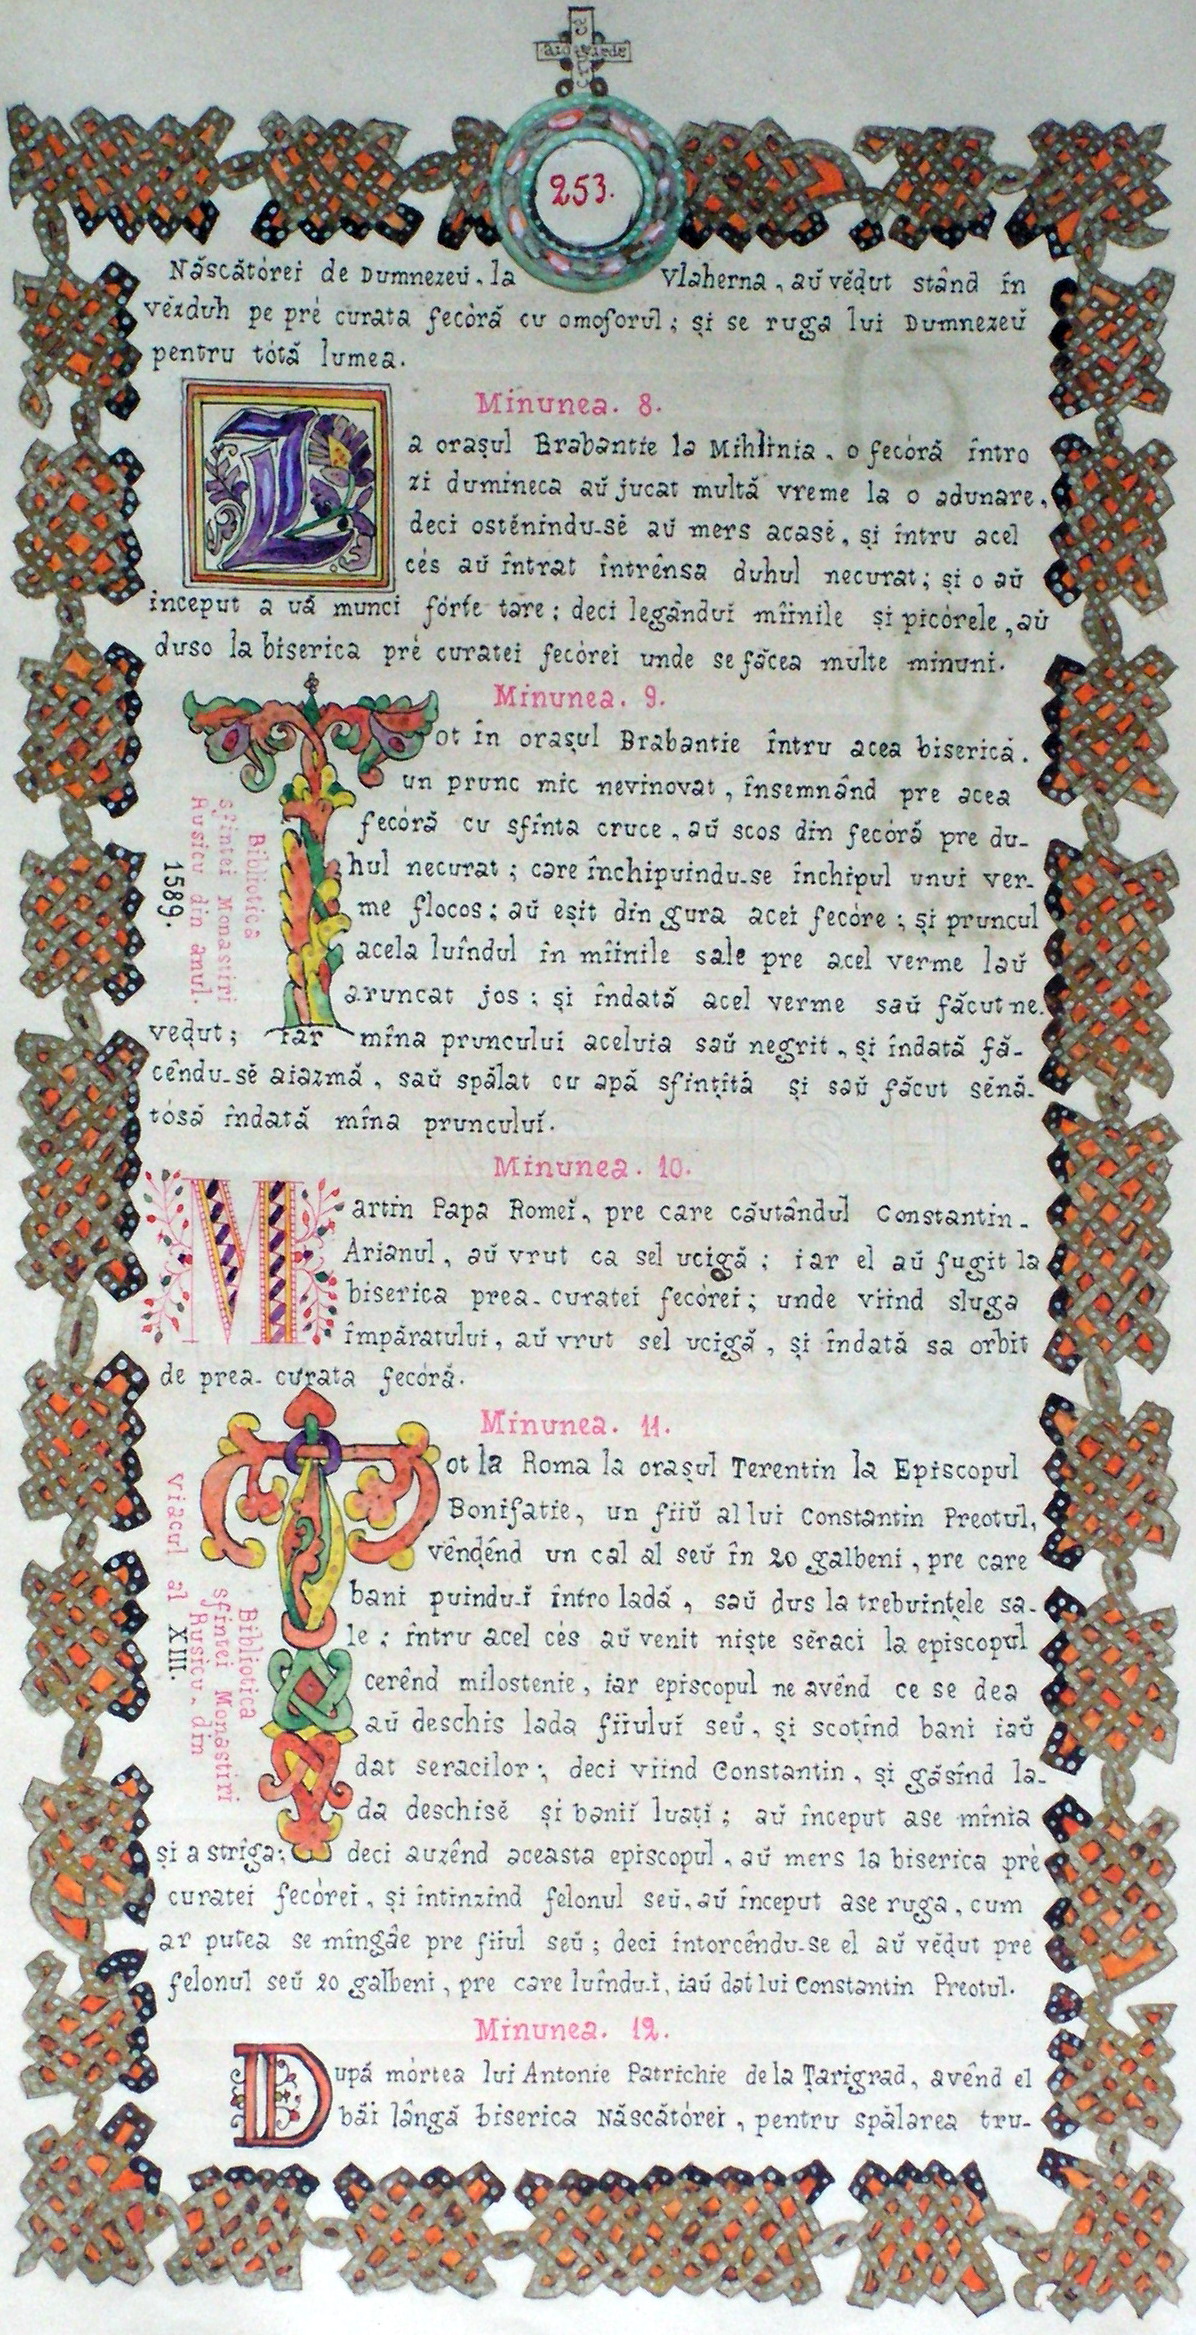 253.
Născătórei de Dumnezeŭ, la Vlaherna, aŭ vĕḑut stând în
vĕzduh pe pré curata fecóră cu omoforul; și se ruga lui Dumnezeŭ
pentru tótă lumea.
Minunea. 8.
La orașul Brabantie la Mihlinia, o fecóră întro
zi dumineca aŭ jucat multă vreme la o adunare,
deci ostĕnindu-sĕ aŭ mers acasĕ, și întru acel
cés aŭ întrat întrênsa duhul necurat; și o aŭ
început a uă munci fórte tare; deci legându-i mîinile și picórele, aŭ
duso la biserica pré curatei fecórei unde se făcea multe minuni.
Minunea. 9.
Tot în orașul Brabantie întru acea biserică.
un prunc mic nevinovat, însemnând pre acea
fecóră cu sfînta cruce, aŭ scos din fecóră pre du-
hul necurat; care închipuindu-se închipul unui ver-
me flocos; aŭ eșit din gura acei fecóre; și pruncul
acela luîndul în mîinile sale pre acel verme laŭ
aruncat jos; și îndată acel verme saŭ făcut ne.
veḑut; iar mîna pruncului aceluia saŭ negrit, și îndată fă-
cêndu-sĕ aiazmă, saŭ spălat cu apă sfințită și saŭ făcut sĕnă-
tósă îndată mîna pruncului.
Bibliotica
sfintei Monastiri
Rusicu din anul.
1589.
Minunea. 10.
Martin Papa Romei, pre care căutândul Constantin-
Arianul, aŭ vrut ca sel ucigă; iar el aŭ fugit la
biserica prea-curatei fecórei; unde viind sluga
împăratului, aŭ vrut sel ucigă, și îndată sa orbit
de prea-curata fecóră.
Minunea. 11.
Tot la Roma la orașul Terentin la Episcopul
Bonifatie, un fiiŭ al lui Constantin Preotul,
vêndênd un cal al seŭ în 20 galbeni, pre care
bani puindu-i întro ladă, saŭ dus la trebuințele sa-
le; întru acel cés aŭ venit niște sĕraci la episcopul
cerênd milostenie, iar episcopul ne avênd ce se dea
aŭ deschis lada fiiului seŭ, și scoțînd bani iaŭ
dat seracilor; deci viind Constantin, și găsînd la-
da deschisĕ și banii luați; aŭ început ase mînia
și a strîga; deci auzênd aceasta episcopul, aŭ mers la biserica pré
curatei fecórei, și intinzînd felonul seŭ, aŭ început ase ruga, cum
ar putea se mîngâe pre fiiul seŭ; deci intorcêndu-se el aŭ vĕḑut pre
felonul seŭ 20 galbeni, pre care luîndu-i, iaŭ dat lui Constantin Preotul.
Bibliotica
sfintei Monastiri
Rusicu. din
viacul al XIII.
Minunea. 12.
După mórtea lui Antonie Patrichie de la Țarigrad, avênd el
băi lângă biserica Născătórei, pentru spălarea tru-